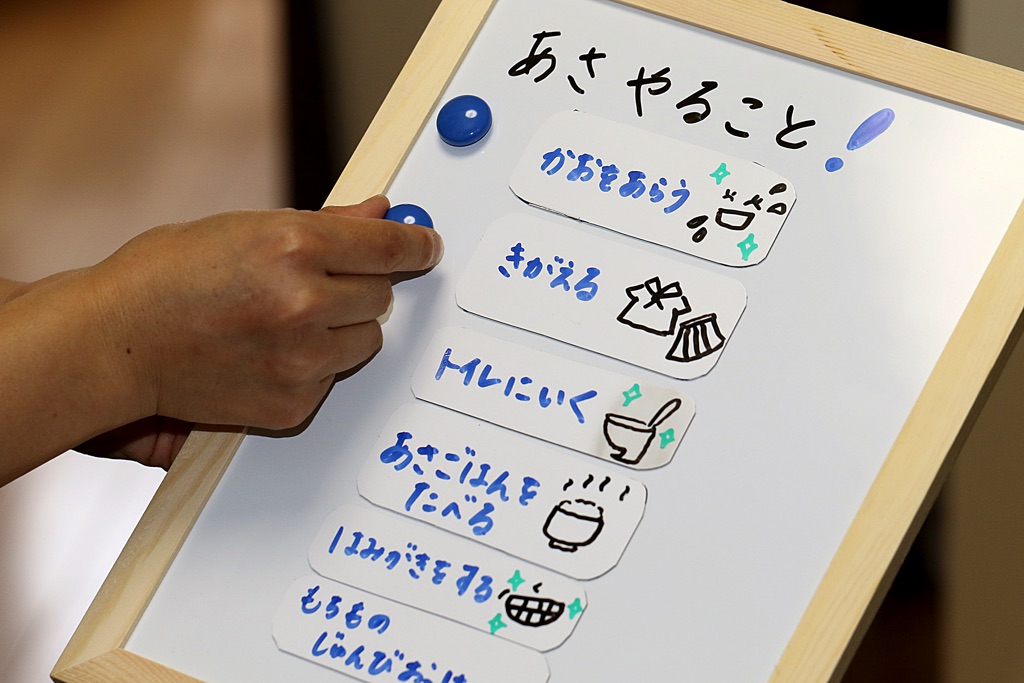 あさ やること!
かおをあらう
きがえる
トイレにいく
あさごはんを
たべる
はみがきをする
もちもの